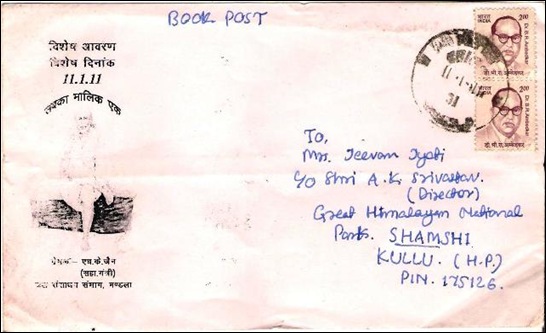 BOOK POST
विशेष आवरण
विशेष दिनांक
11.1.11
सबका मालिक एक
भारत
INDIA
2.00
Dr. B.R. Ambedkar
डॉ. बी. आर. अम्बेडकर
भारत
INDIA
2.00
Dr. B.R. Ambedkar
डॉ. बी. आर. अम्बेडकर
To,
Mrs. Jeevan Jyoti
C/o Shri A.K. Srivastav.
(Director)
Great Himalayan National
Park. SHAMSHI
KULLU. (H.P.)
PIN. 175126.
प्रेषक- एच.के.जैन
(सहा.यंत्री)
संसाधन संभाग, मण्डला